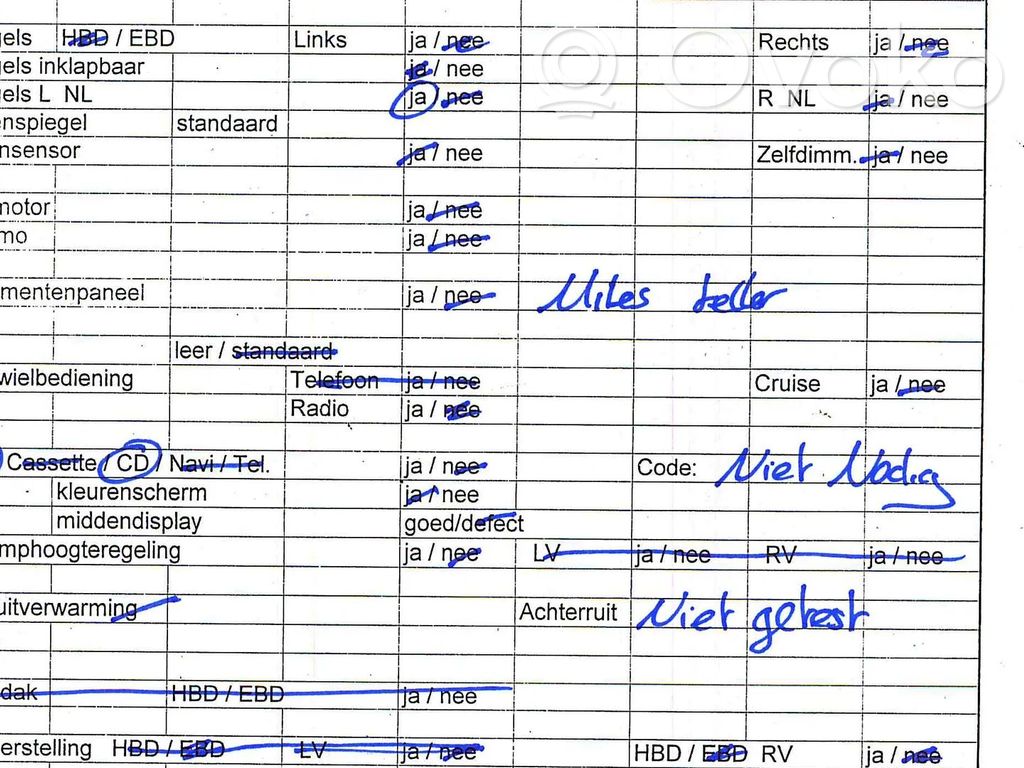 gels HBD / EBD Links ja / nee Rechts ja / nee
gels inklapbaar ja / nee
gels L NL ja / nee R NL ja / nee
enspiegel standaard
nsensor ja / nee Zelfdimm. ja / nee
motor ja / nee
mo ja / nee
mentenpaneel ja / nee Miles teller
leer / standaard
wielbediening Telefoon ja / nee Cruise ja / nee
Radio ja / nee
Cassette / CD / Navi / Tel. ja / nee Code: Niet Nodig
kleurenscherm ja / nee
middendisplay goed/defect
mphoogteregeling ja / nee LV ja / nee RV ja / nee
uitverwarming Achterruit Niet getest
dak HBD / EBD ja / nee
erstelling HBD / EBD LV ja / nee HBD / EBD RV ja / nee
Ovoko